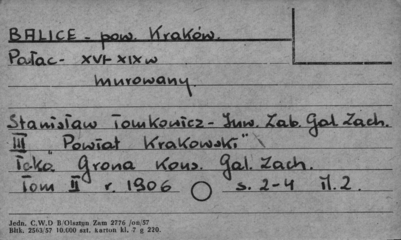 BALICE - pow. Kraków.
Pałac - XVI-XIX w
murowany.
Stanisław Tomkowicz - Inw. Zab. Gal. Zach.
III "Powiat Krakowski"
Teka Grona Kons. Gal. Zach.
Tom II r. 1906 s. 2-4 il. 2.
Jedn. C.W.D B/Olsztyn Zam 2776 /on/57
Bltk. 2563/57 10.000 szt. karton kl. 7 g 220.